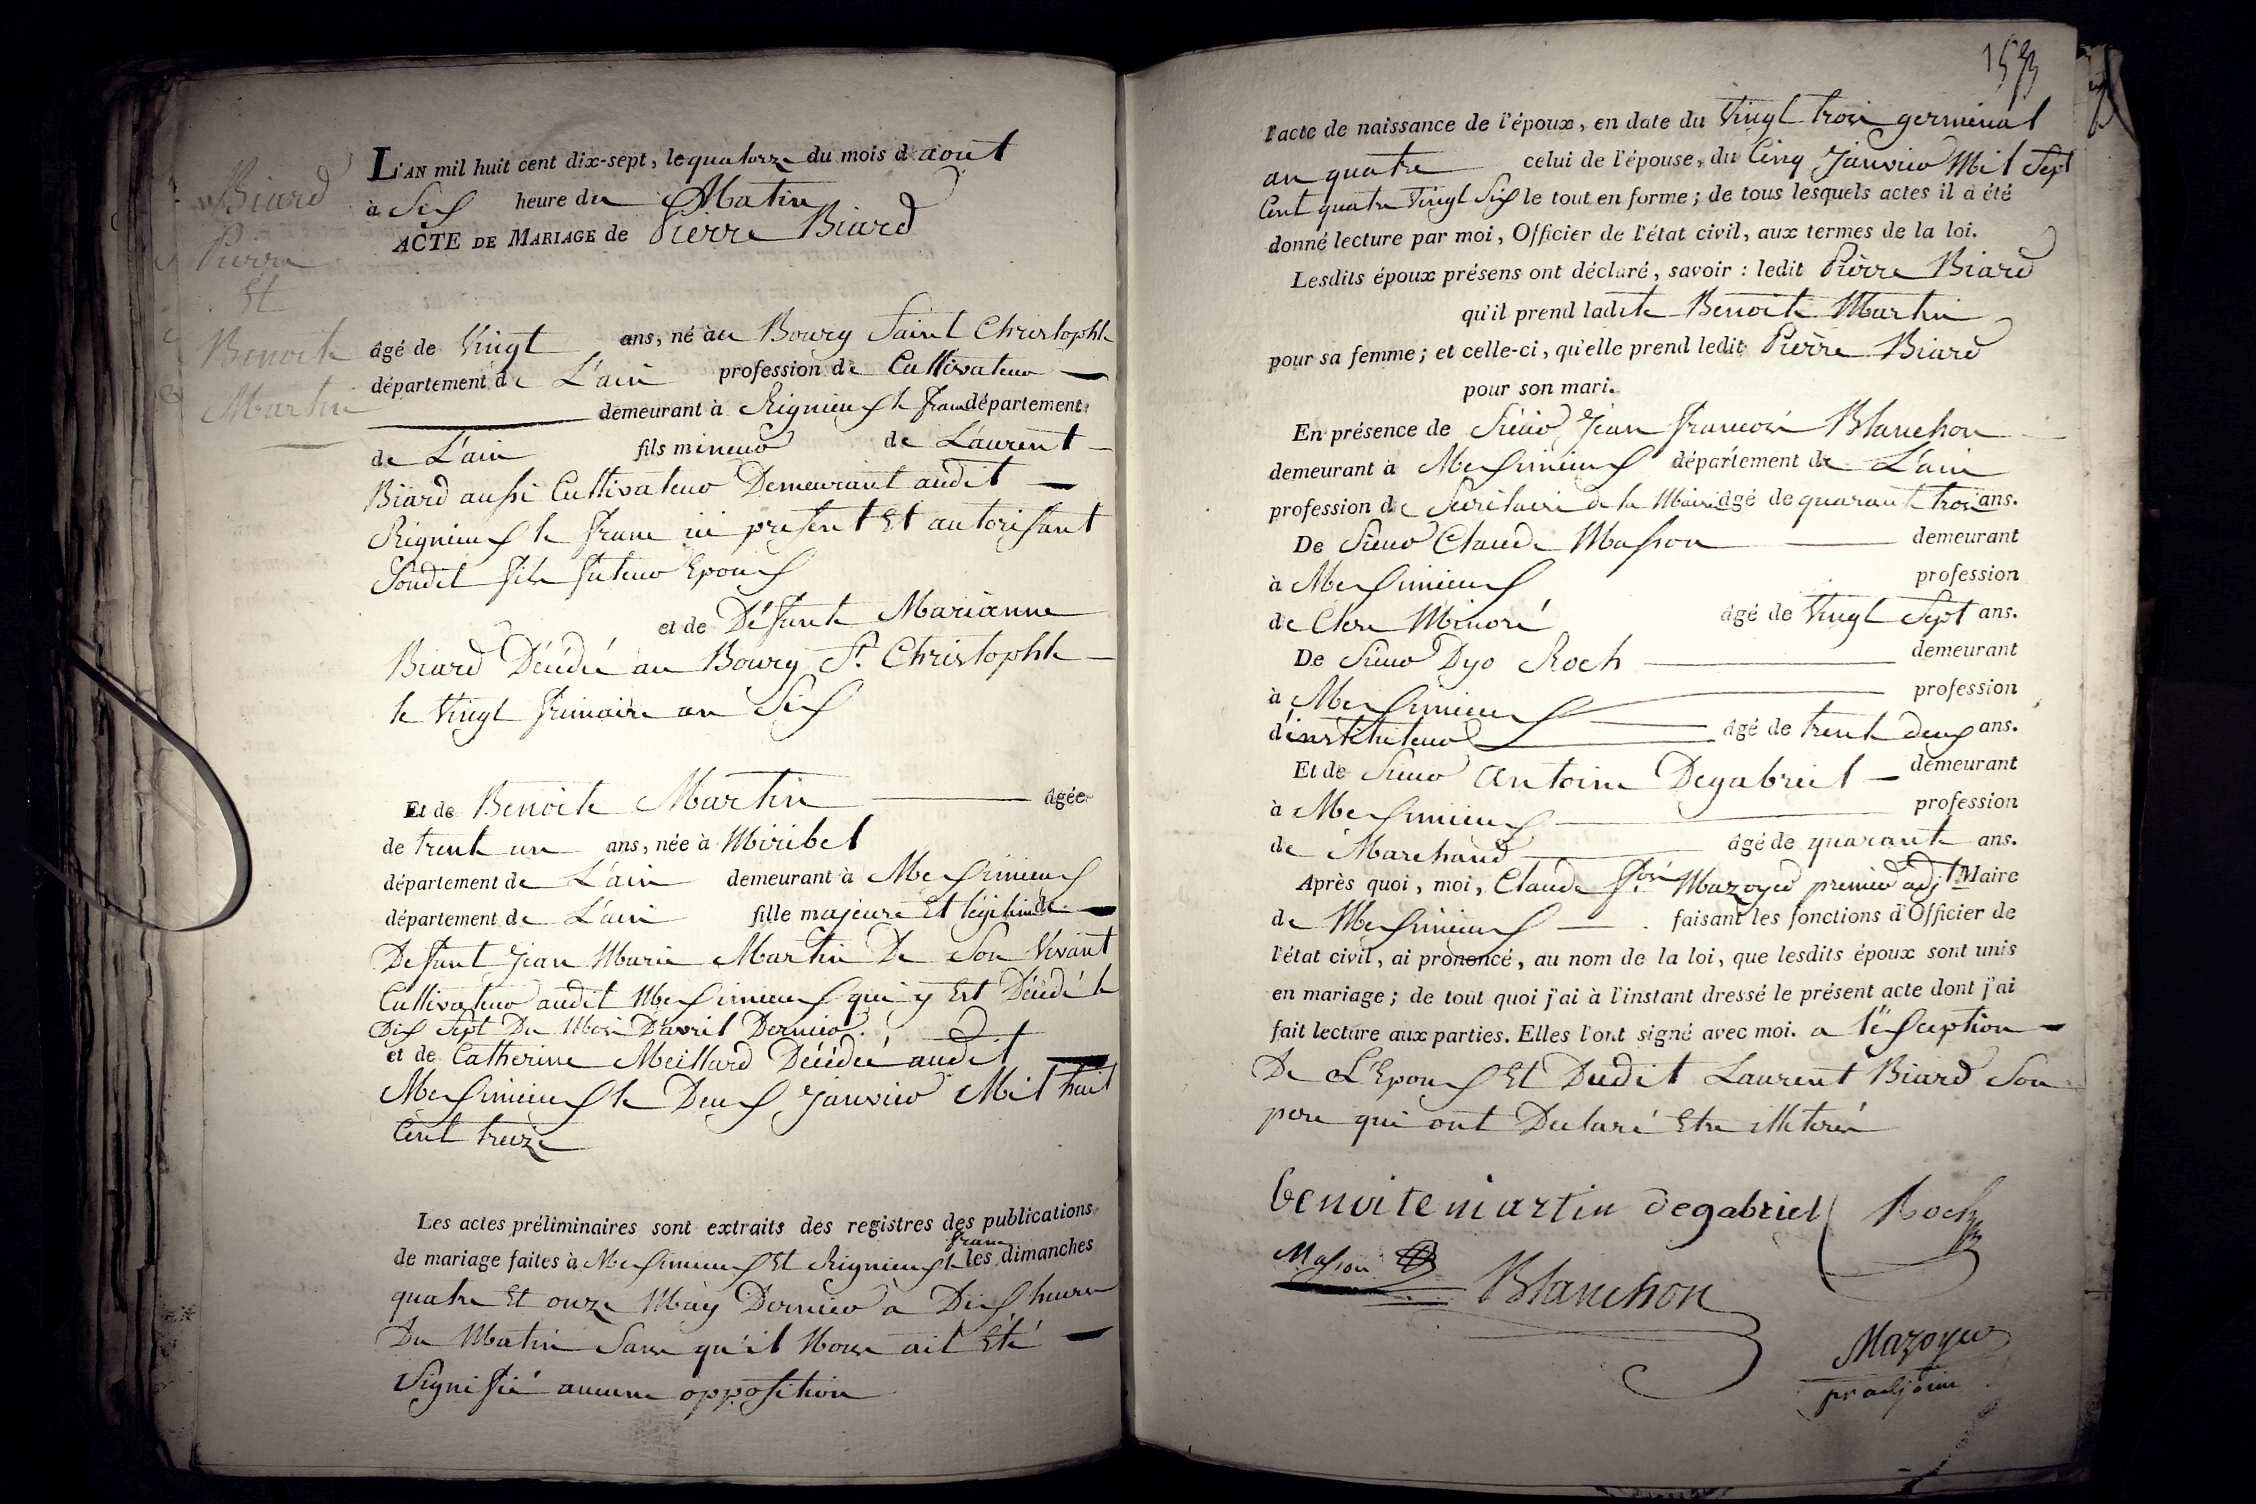 Biard
Pierre
Et
Benoite
Martin
L'AN mil huit cent dix-sept, le quatorze du mois d'aout
à Six heure du Matin
ACTE DE MARIAGE de Pierre Biard
âgé de Vingt ans, né au Bourg Saint Christophle
département de L'ain profession de Cultivateur
demeurant à Rignieux le franc département
de L'ain fils mineur de Laurent
Biard aussi Cultivateur Demeurant audit
Rignieux le franc ici present Et autorisant
Soudit fils futeur Epoux
et de Défunte Marianne
Biard Décédé au Bourg St. Christophle
le Vingt frimaire an Six
Et de Benoite Martin âgée
de trente un ans, née à Miribel
département de L'ain demeurant à Meximieux
département de L'ain fille majeure Et légitime de
Defunt Jean Marie Martin De Son Vivant
Cultivateur audit Meximieux qui y Est Décédé le
Dix Sept Du Mois D'avril Dernier.
et de Catherine Meillard Décédée audit
Meximieux le Deux Janvier Mil huit
Cent treize
Les actes préliminaires sont extraits des registres des publications
de mariage faites à Meximieux Et Rignieux le franc les dimanches
quatre Et onze May Dernier à Dix heures
Du Matin Sans qu'il Nous ait Eté
Signifié aucune opposition
l'acte de naissance de l'époux, en date du Vingt trois germinal
an quatre celui de l'épouse, du Cinq Janvier Mil Sept
Cent quatre Vingt Six le tout en forme; de tous lesquels actes il a été
donné lecture par moi, Officier de l'état civil, aux termes de la loi.
Lesdits époux présens ont déclaré, savoir : ledit Pierre Biard
qu'il prend ladite Benoite Martin
pour sa femme; et celle-ci, qu'elle prend ledit Pierre Biard
pour son mari.
En présence de Sieur Jean francois Blanchon
demeurant à Meximieux département de L'ain
profession de Secrétaire de la Mairie âgé de quarante trois ans.
De Sieur Claude Masson demeurant
à Meximieux profession
de Clerc Minoré âgé de Vingt Sept ans.
De Sieur Dyo Roch demeurant
à Meximieux profession
d'instituteur âgé de trente deux ans.
Et de Sieur antoine Degabriel demeurant
à Meximieux profession
de Marchand âgé de quarante ans.
Après quoi, moi, Claude fois Mazoyer premier adjt Maire
de Meximieux faisant les fonctions d'Officier de
l'état civil, ai prononcé, au nom de la loi, que lesdits époux sont unis
en mariage; de tout quoi j'ai à l'instant dressé le présent acte dont j'ai
fait lecture aux parties. Elles l'ont signé avec moi. a l'exseption
De L'Epoux Et Dudit Laurent Biard Son
pere qui ont Declaré Etre illeterés
benoite martin degabriel Roch
Masson Blanchon
Mazoyer
pr adjoint